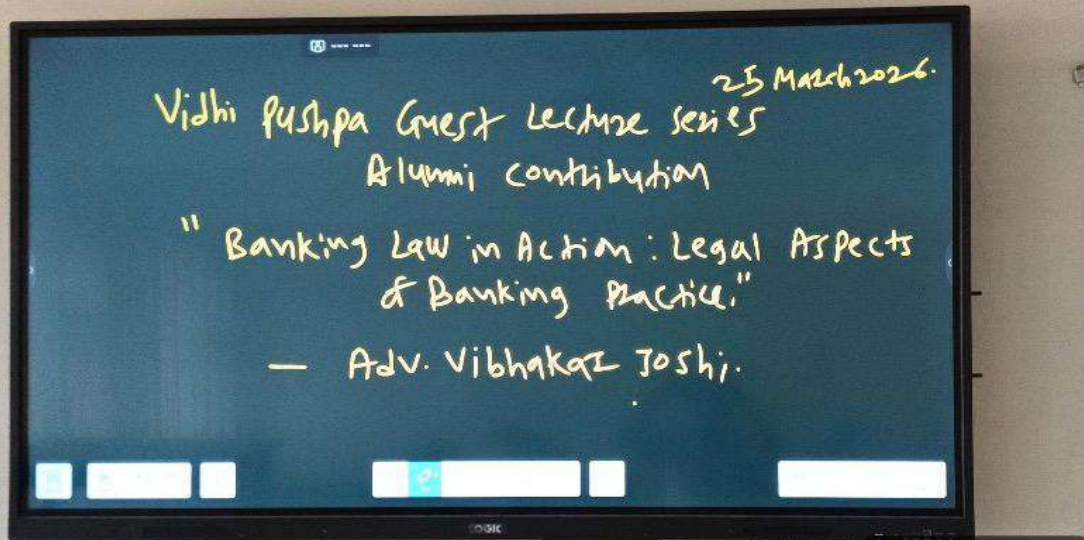 25 March 2026.
Vidhi Pushpa Guest Lecture Series
Alumni contribution
"Banking Law in Action : Legal Aspects
of Banking Practice."
— Adv. Vibhakar Joshi.